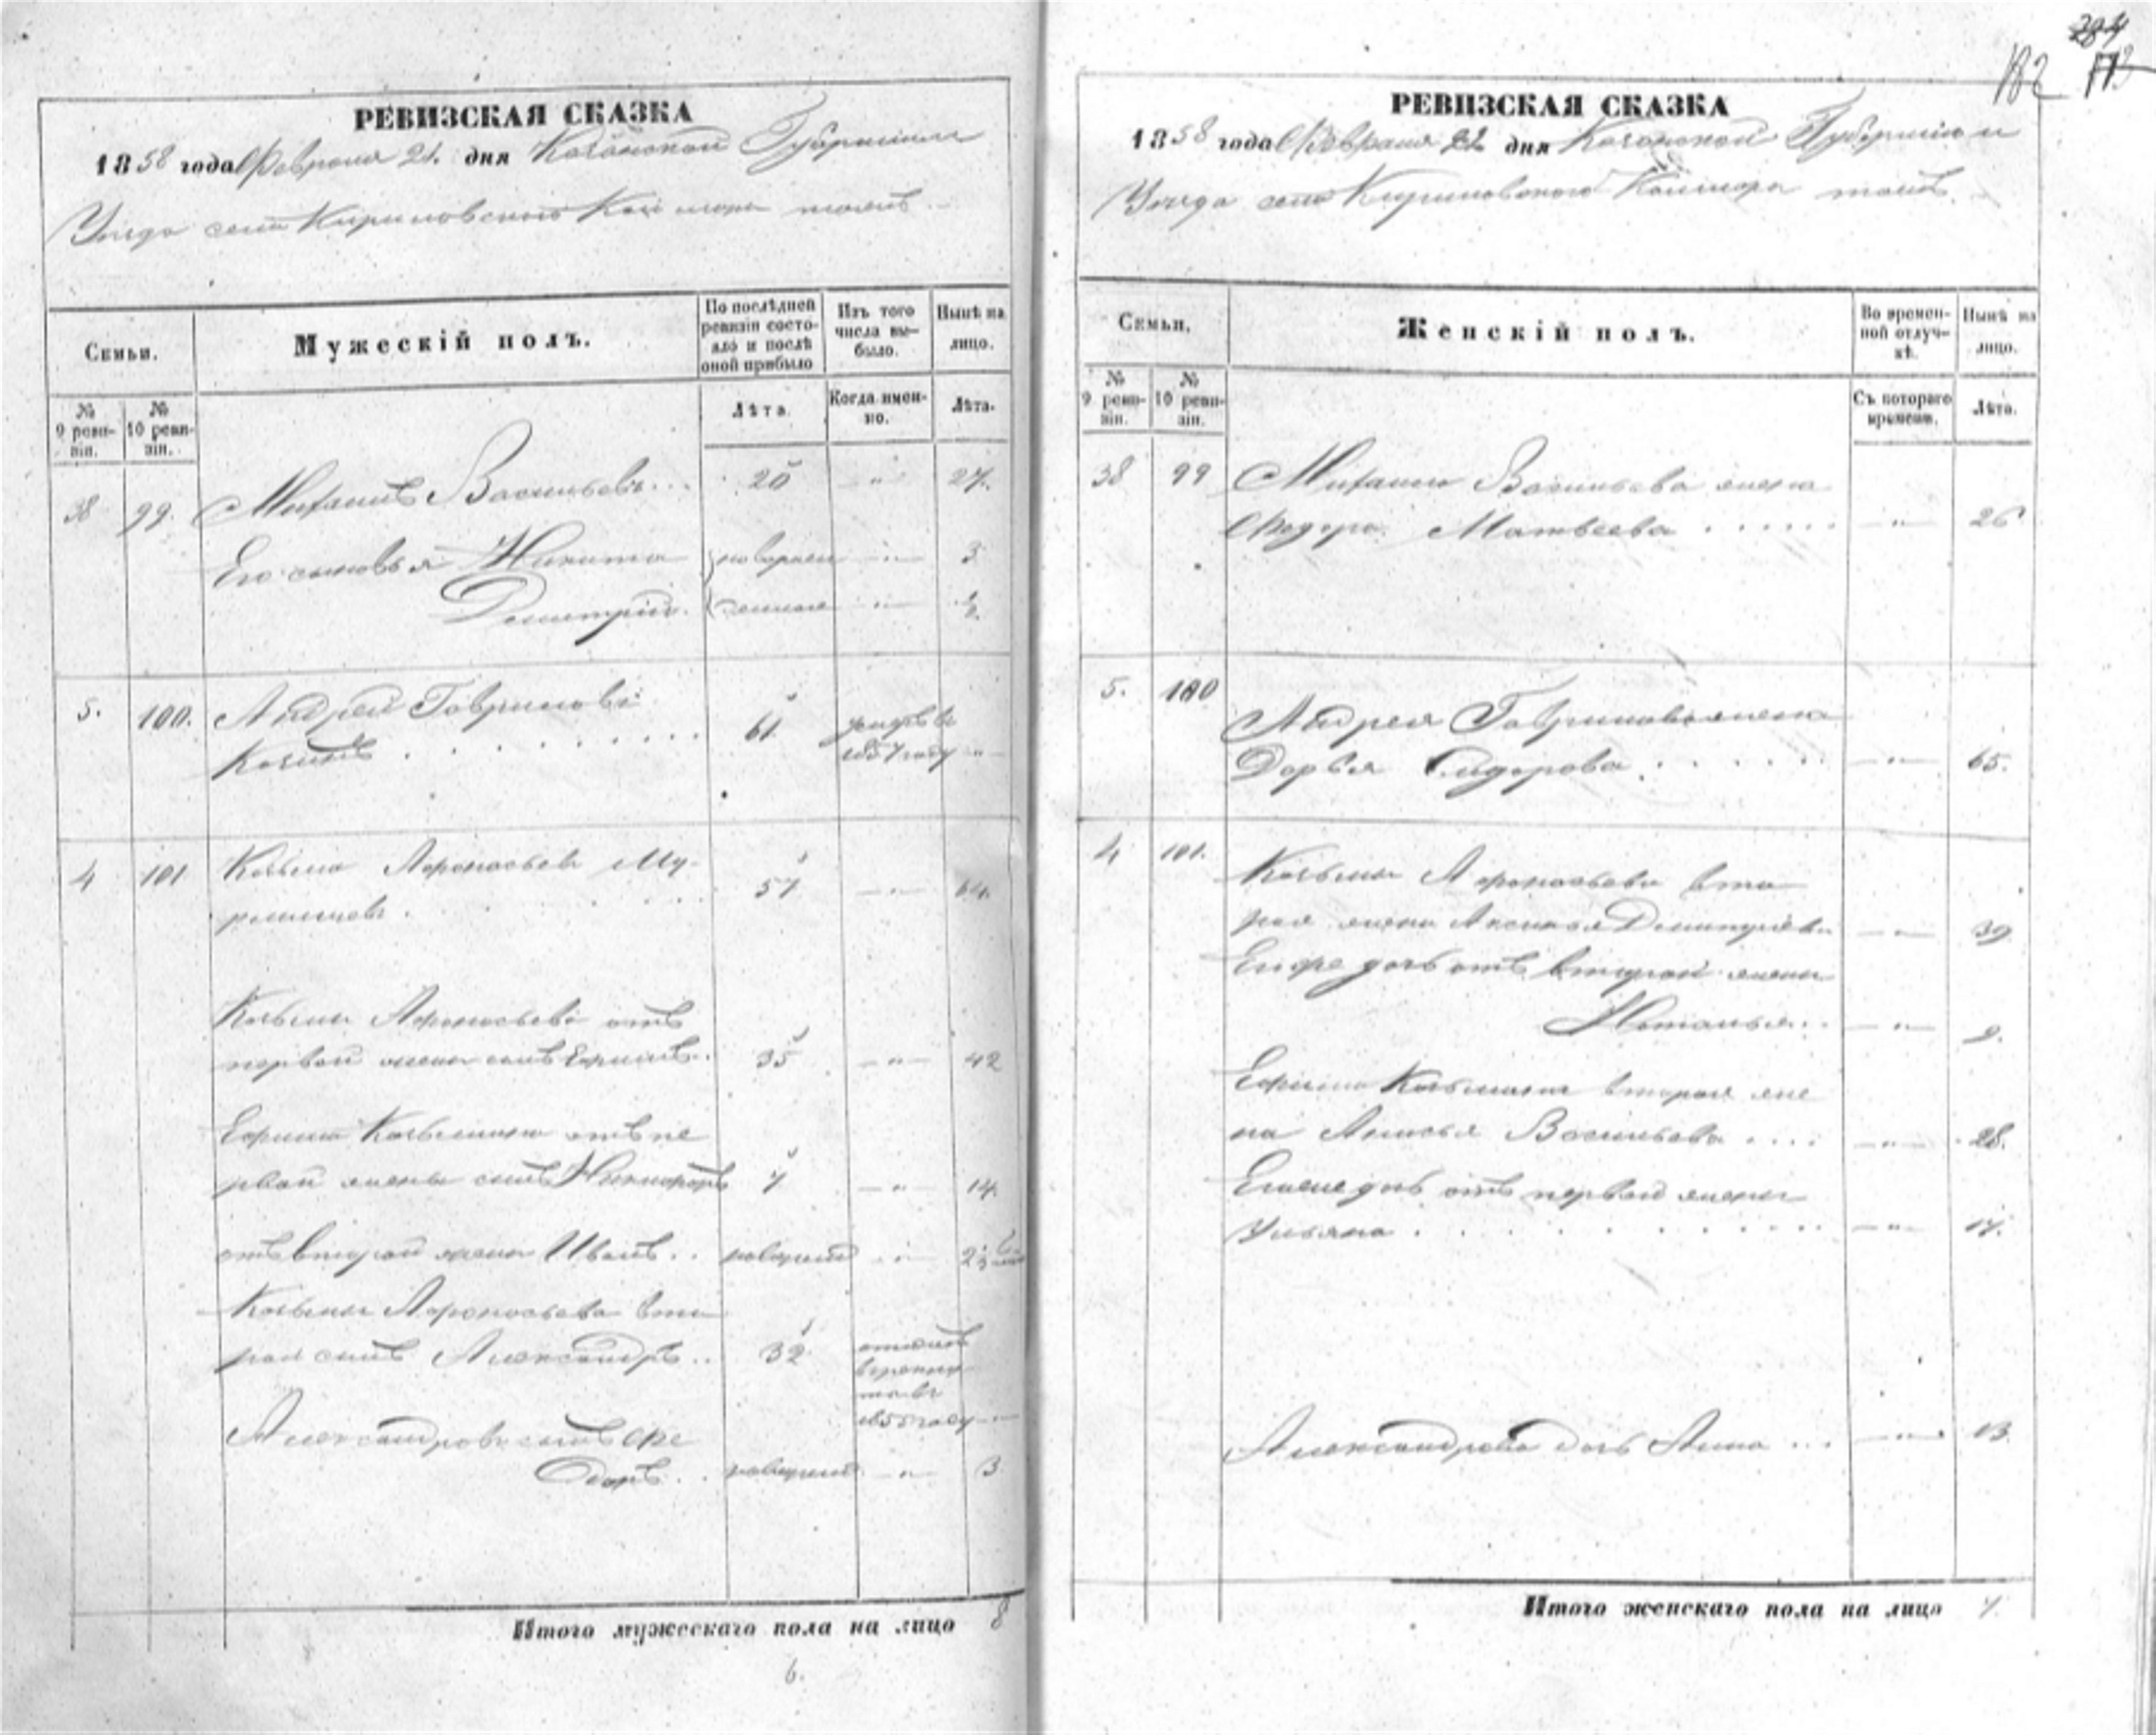 РЕВИЗСКАЯ СКАЗКА
1858 года Февраля 21 дня Казанской Губернии
Уезда села Кириловскаго тожъ
Семьи.
Мужескій полъ.
По послѣдней ревизіи состояло и послѣ оной прибыло
Изъ того числа выбыло.
Нынѣ на лицо.
№ 9 ревизіи.
№ 10 ревизіи.
Лѣта.
Когда имен-
но.
Лѣта.
38 99. Васильевъ... 20 " 27.
Его сыновья Никита новорож 3
Дмитрій. денные " ½
5. 100. Андрей Гавриловъ
61 умеръ въ
1857 году "
4 101 Козьма Афонасьевъ Му-
. . . . 57 " 64.
Козьмы Афонасьева отъ
первой жены сынъ Ефимъ. 35 " 42
Ефима Козьмина отъ пе
рвой жены сынъ Никифоръ 7 " 14
отъ второй жены Иванъ.. новорожд "
Козьмы Афонасьева вто
рой сынъ Александръ.. 32
въ
1855 году "
Александровъ сынъ Фе
доръ.. новорожд " 3
Итого мужескаго пола на лицо 8
6.
284
173
182
РЕВИЗСКАЯ СКАЗКА
1858 года Февраля 21 дня Казанской Губернии
Уезда села Кириловскаго тожъ.
Семьи.
Женскій полъ.
Во времен-
ной отлуч-
кѣ.
Нынѣ на
лицо.
№ 9 ревизіи.
№ 10 ревизіи.
Съ котораго
времени.
Лѣта.
38 99 Васильева жена
Матвеева . . . . . " 26
5. 100
Андрея Гаврилова жена
Дарья Сидорова . . . . . " 65.
4 101. Козьмы Афонасьева вто
рая жена Аксинья Дмитріева " 39
Его же дочь отъ второй жены
Наталья.. " 9.
Ефима Козьмина вторая же
на Анисья Васильева . . . . " 28.
Его же дочь отъ первой жены
Ульяна . . . . . . " 17.
Александрова дочь Анна ... " 13.
Итого женскаго пола на лицо 7.